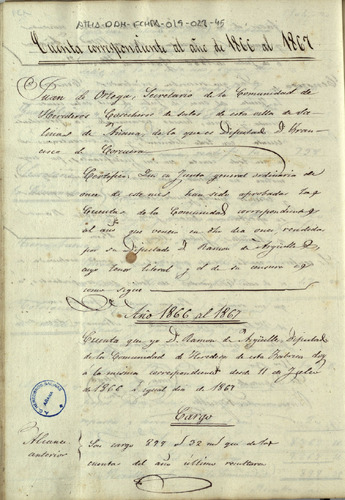 ATHA-DDH-FCHPA-019-028-45
Cuenta correspondiente al año de 1866 al 1867
Juan de Ortega, Secretario de la Comunidad de
Herederos Cosecheros de sales de esta villa de Sa-
linas de Añana, de la que es Diputado D. Fran-
cisco de Corcuera
Certifico: Que en Junta general ordinaria de
once de este mes han sido aprobadas las
Cuentas de la Comunidad correspondientes
al año que vencio en dho dia once rendidas
por su Diputado D. Ramon de Argüelles
cuyo tenor literal y el de su censura es
como sigue
Año 1866 al 1867
Cuenta que yo D. Ramon de Argüelles, Diputado
de la Comunidad de Herederos de esta doy
a la misma correspondiente desde 11 de Julio
de 1866 a igual dia de 1867
Cargo
Alcance
anterior
Son cargo 32 que de la
cuenta del año último resultaron